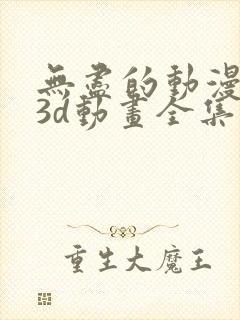 無盡的動漫
3d動畫全集
重生大魔王